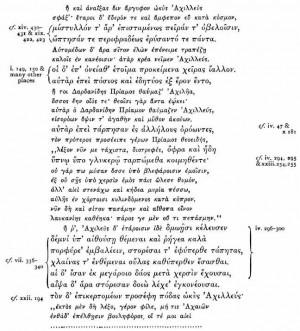 ἦ καὶ ἀναΐξας ὄϊν ἄργυφον ὠκὺς Ἀχιλλεὺς
cf. xiv. 430-
431 & xix.
422, 423
σφάξ᾽· ἕταροι δ᾽ ἔδερόν τε καὶ ἄμφεπον εὖ κατὰ κόσμον,
μίστυλλόν τ᾽ ἄρ᾽ ἐπισταμένως πεῖράν τ᾽ ὀβελοῖσιν,
ὄπτησάν τε περιφραδέως ἐρύσαντό τε πάντα.
Αὐτομέδων δ᾽ ἄρα σῖτον ἑλὼν ἐπένειμε τραπέζῃ
καλοῖς ἐν κανέοισιν· ἀτὰρ κρέα νεῖμεν Ἀχιλλεύς.
i. 149, 150 &
many other
places
οἱ δ᾽ ἐπ᾽ ὀνείαθ᾽ ἑτοῖμα προκείμενα χεῖρας ἴαλλον.
αὐτὰρ ἐπεὶ πόσιος καὶ ἐδητύος ἐξ ἔρον ἕντο,
ἦ τοι Δαρδανίδης Πρίαμος θαύμαζ᾽ Ἀχιλῆα,
ὅσσος ἔην οἷός τε· θεοῖσι γὰρ ἄντα ἐῴκει·
αὐτὰρ ὁ Δαρδανίδην Πρίαμον θαύμαζεν Ἀχιλλεύς,
εἰσορόων ὄψιν τ᾽ ἀγαθὴν καὶ μῦθον ἀκούων.
αὐτὰρ ἐπεὶ τάρπησαν ἐς ἀλλήλους ὁρόωντες,
cf. iv. 47 &
x. 181
τὸν πρότερος προσέειπε γέρων Πρίαμος θεοειδής,
„λέξον νῦν με τάχιστα, διοτρεφές, ὄφρα καὶ ἤδη
cf. iv. 294, 295
& xxiii. 254, 255
ὕπνῳ ὕπο γλυκερῷ ταρπώμεθα κοιμηθέντες·
οὐ γάρ πω μύσαν ὄσσε ὑπὸ βλεφάροισιν ἐμοῖσιν,
ἐξ οὗ σῇς ὑπὸ χερσὶν ἐμὸς πάϊς ὤλεσε θυμόν,
ἀλλ᾽ αἰεὶ στενάχω καὶ κήδεα μυρία πέσσω,
αὐλῆς ἐν χόρτοισι κυλινδόμενος κατὰ κόπρον.
νῦν δὴ καὶ σίτου πασάμην καὶ αἴθοπα οἶνον
λαυκανίης καθέηκα· πάρος γε μὲν οὔ τι πεπάσμην.“
cf. vii. 336-
340
iv. 296-300
ἦ ῥ᾽, Ἀχιλεὺς δ᾽ ἑτάροισιν ἰδὲ δμωῇσι κέλευσεν
δέμνι᾽ ὑπ᾽ αἰθούσῃ θέμεναι καὶ ῥήγεα καλὰ
πορφύρε᾽ ἐμβαλέειν, στορέσαι τ᾽ ἐφύπερθε τάπητας,
χλαίνας τ᾽ ἐνθέμεναι οὔλας καθύπερθεν ἕσασθαι.
αἱ δ᾽ ἴσαν ἐκ μεγάροιο δάος μετὰ χερσὶν ἔχουσαι,
αἶψα δ᾽ ἄρα στόρεσαν δοιὼ λέχε᾽ ἐγκονέουσαι.
cf. xxii. 194
τὸν δ᾽ ἐπικερτομέων προσέφη πόδας ὠκὺς Ἀχιλλεύς·
„ἐκτὸς μὲν δὴ λέξο, γέρον φίλε, μή τις Ἀχαιῶν
ἐνθάδ᾽ ἐπέλθῃσιν βουληφόρος, οἵ τέ μοι αἰεὶ